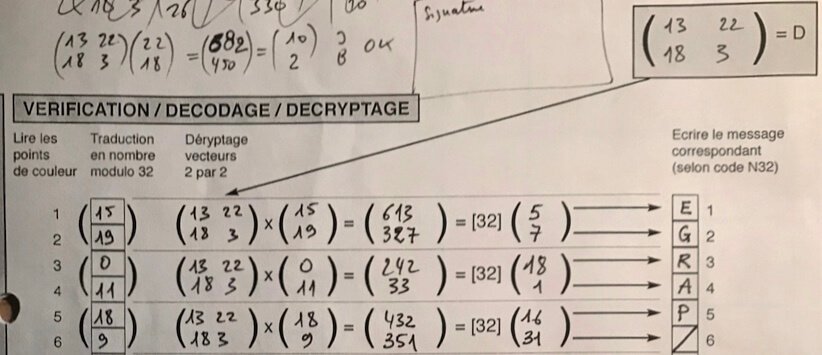 Signature
(13 22 / 18 3) (22 / 18) = (682 / 450) = (10 / 2) J B OK
(13 22 / 18 3) = D
VERIFICATION / DECODAGE / DECRYPTAGE
Lire les points de couleur
Traduction en nombre modulo 32
Déryptage vecteurs 2 par 2
Ecrire le message correspondant (selon code N32)
1 2 (15 / 19) (13 22 / 18 3) × (15 / 19) = (613 / 327) = [32] (5 / 7) E 1 G 2
3 4 (0 / 11) (13 22 / 18 3) × (0 / 11) = (242 / 33) = [32] (18 / 1) R 3 A 4
5 6 (18 / 9) (13 22 / 18 3) × (18 / 9) = (432 / 351) = [32] (16 / 31) P 5 / 6